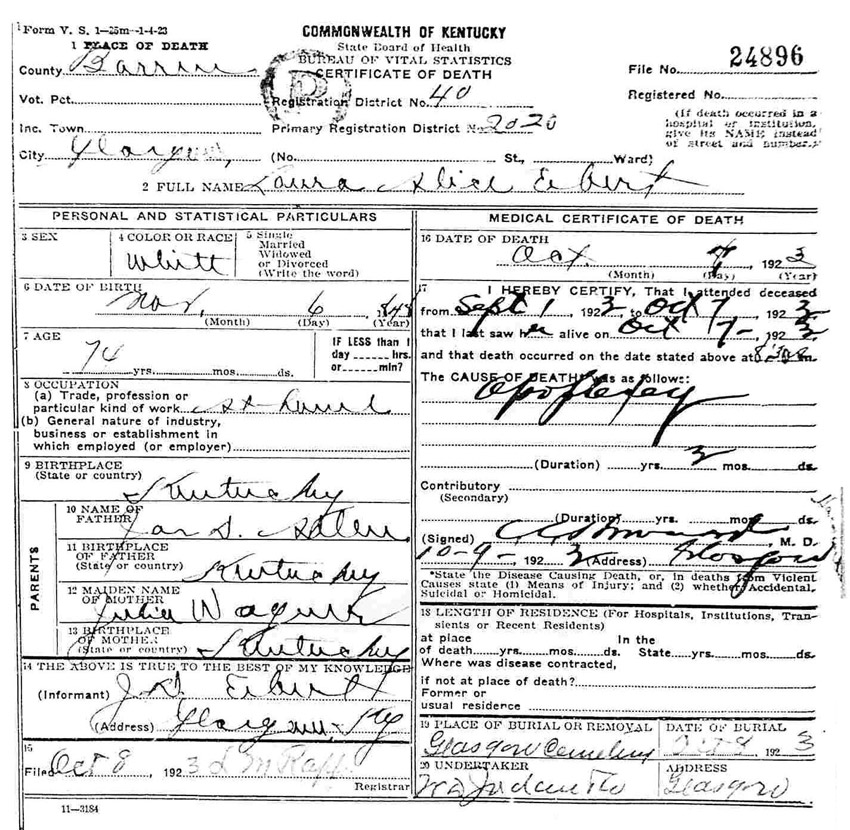 Form V. S. 1—25m—1-4-23
COMMONWEALTH OF KENTUCKY
State Board of Health
BUREAU OF VITAL STATISTICS
CERTIFICATE OF DEATH
1 PLACE OF DEATH
County Barren
File No. 24896
Vot. Pct.
Registration District No. 40
Registered No.
Inc. Town
Primary Registration District No. 2020
(If death occurred in a hospital or institution, give its NAME instead of street and number.)
City Glasgow, (No. St., Ward)
2 FULL NAME Laura Alice
PERSONAL AND STATISTICAL PARTICULARS
3 SEX
4 COLOR OR RACE
White
5 Single
Married
Widowed
or Divorced
(Write the word)
6 DATE OF BIRTH
Nov, 6 1848
(Month) (Day) (Year)
7 AGE
74 yrs. mos. ds.
IF LESS than 1
day hrs.
or min?
8 OCCUPATION
(a) Trade, profession or
particular kind of work at home
(b) General nature of industry,
business or establishment in
which employed (or employer)
9 BIRTHPLACE
(State or country)
Kentucky
PARENTS
10 NAME OF
FATHER
Jas S.
11 BIRTHPLACE
OF FATHER
(State or country)
Kentucky
12 MAIDEN NAME
OF MOTHER
Julia
13 BIRTHPLACE
OF MOTHER
(State or country) Kentucky
14 THE ABOVE IS TRUE TO THE BEST OF MY KNOWLEDGE
(Informant)
(Address) Glasgow, Ky
15
Filed Oct 8, 1923
Registrar
11—3184
MEDICAL CERTIFICATE OF DEATH
16 DATE OF DEATH
Oct. 7 1923
(Month) (Day) (Year)
17 I HEREBY CERTIFY, That I attended deceased
from Sept 1, 1923, to Oct 7, 1923
that I last saw her alive on Oct 7-, 1923
and that death occurred on the date stated above at m.
The CAUSE OF DEATH was as follows:
Apoplexy
(Duration) yrs. 2 mos. ds.
Contributory
(Secondary)
(Duration) yrs. mos. ds.
(Signed) M. D.
10-9-, 1923 (Address) Glasgow
*State the Disease Causing Death, or, in deaths from Violent
Causes state (1) Means of Injury; and (2) whether Accidental,
Suicidal or Homicidal.
18 LENGTH OF RESIDENCE (For Hospitals, Institutions, Transients or Recent Residents)
at place In the
of death yrs. mos. ds. State yrs. mos. ds.
Where was disease contracted,
if not at place of death?
Former or
usual residence
19 PLACE OF BURIAL OR REMOVAL
Glasgow Cemetery
DATE OF BURIAL
Oct 8 1923
20 UNDERTAKER
ADDRESS
Glasgow